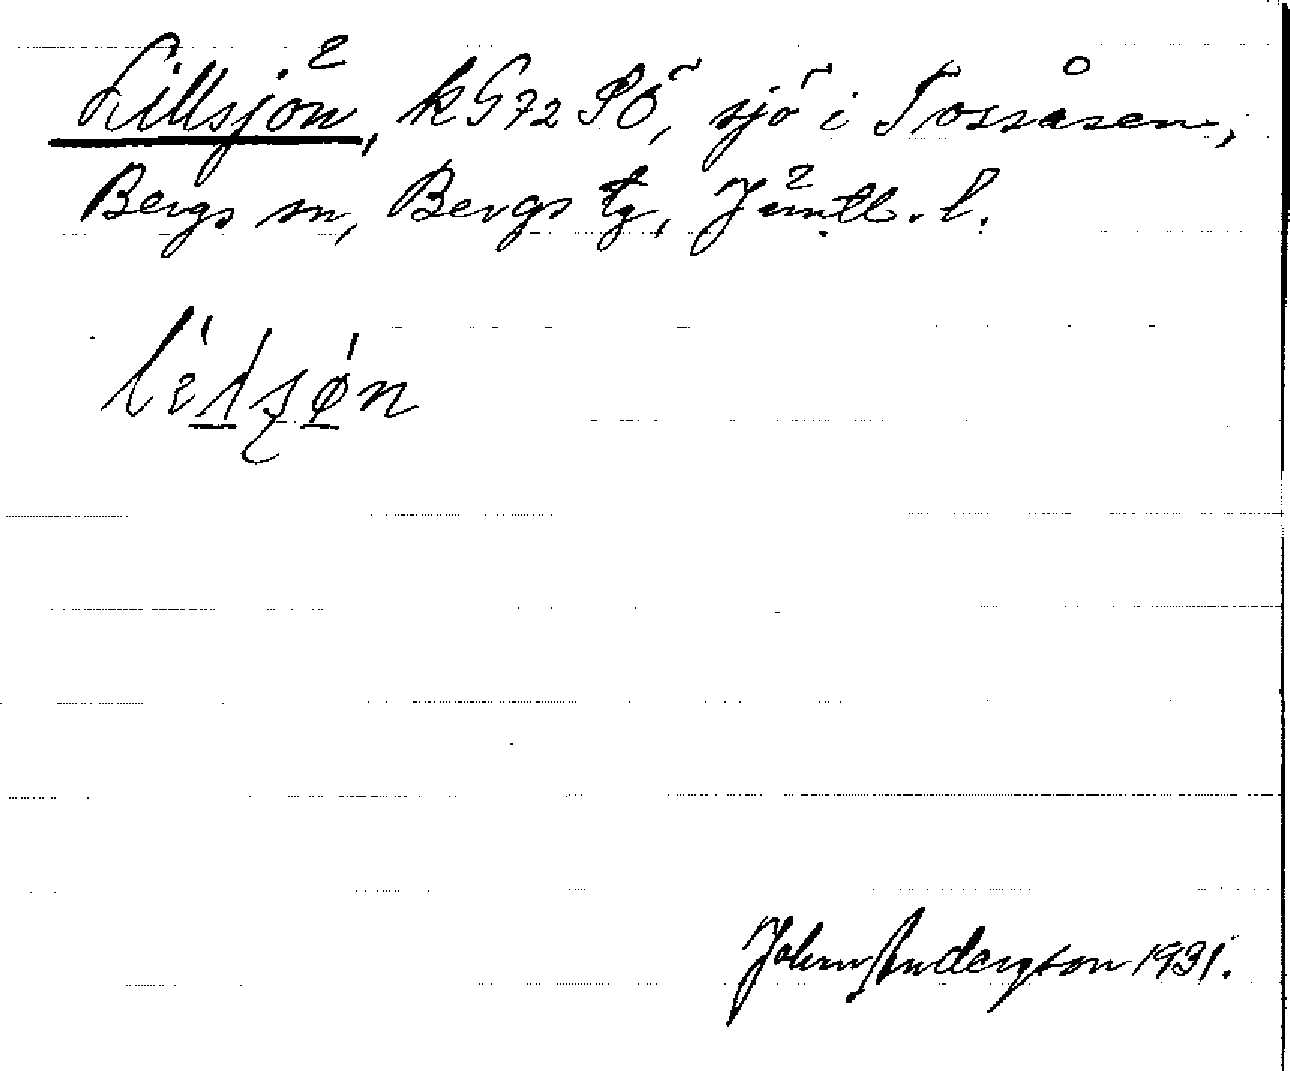 Lillsjön, kG72 SÖ, sjö i Tossåsen,
Bergs sn, Bergs tg, Jämtl. l.
John Andersson 1931.